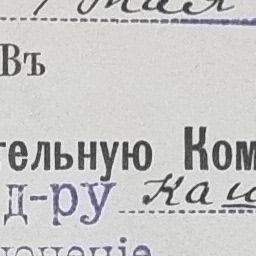 мая
Въ
тельную Ком
д-ру Каш
ючение